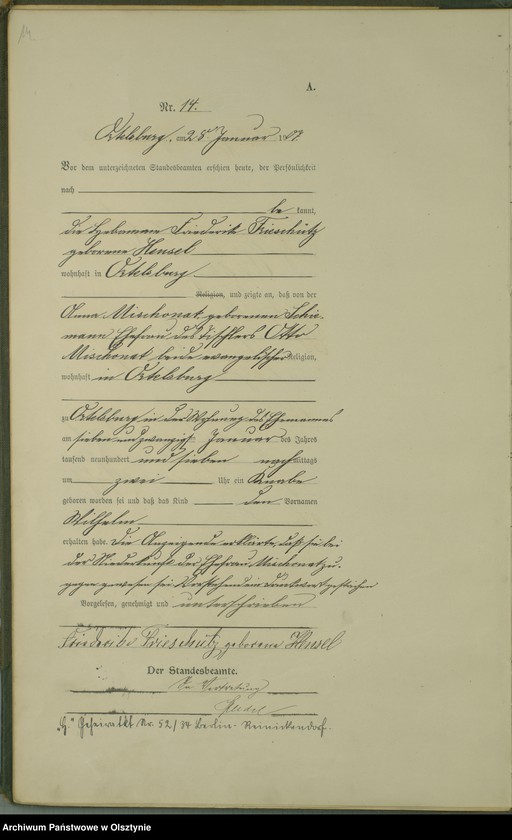 14
A.
Nr. 14.
Ortelsburg, am 28ten Januar 1907.
Vor dem unterzeichneten Standesbeamten erschien heute, der Persönlichkeit
nach
be kannt,
die Hebamme Friederike Frieschütz
geborene Hensel
wohnhaft in Ortelsburg
Religion, und zeigte an, daß von der
Anna Mischonat, geborenen Schie-
mann Ehefrau des Tischlers Otto
Mischonat, beide evangelischer Religion,
wohnhaft in Ortelsburg
zu Ortelsburg in der Wohnung des Ehemannes
am sieben und zwanzigsten Januar des Jahres
tausend neunhundert und sieben nachmittags
um zwei Uhr ein Knabe
geboren worden sei und daß das Kind den Vornamen
Wilhelm
erhalten habe. Die Anzeigende erklärte, daß sie bei
der Niederkunft der Ehefrau Mischonat zu-
gegen gewesen sei. Vorstehend ein Druckwort gestrichen
Vorgelesen, genehmigt und unterschrieben
Friederike Frieschütz geborene Hensel
Der Standesbeamte.
In Vertretung
"H." Geheiratet Nr. 52/34 Berlin-Reinickendorf.
Archiwum Państwowe w Olsztynie